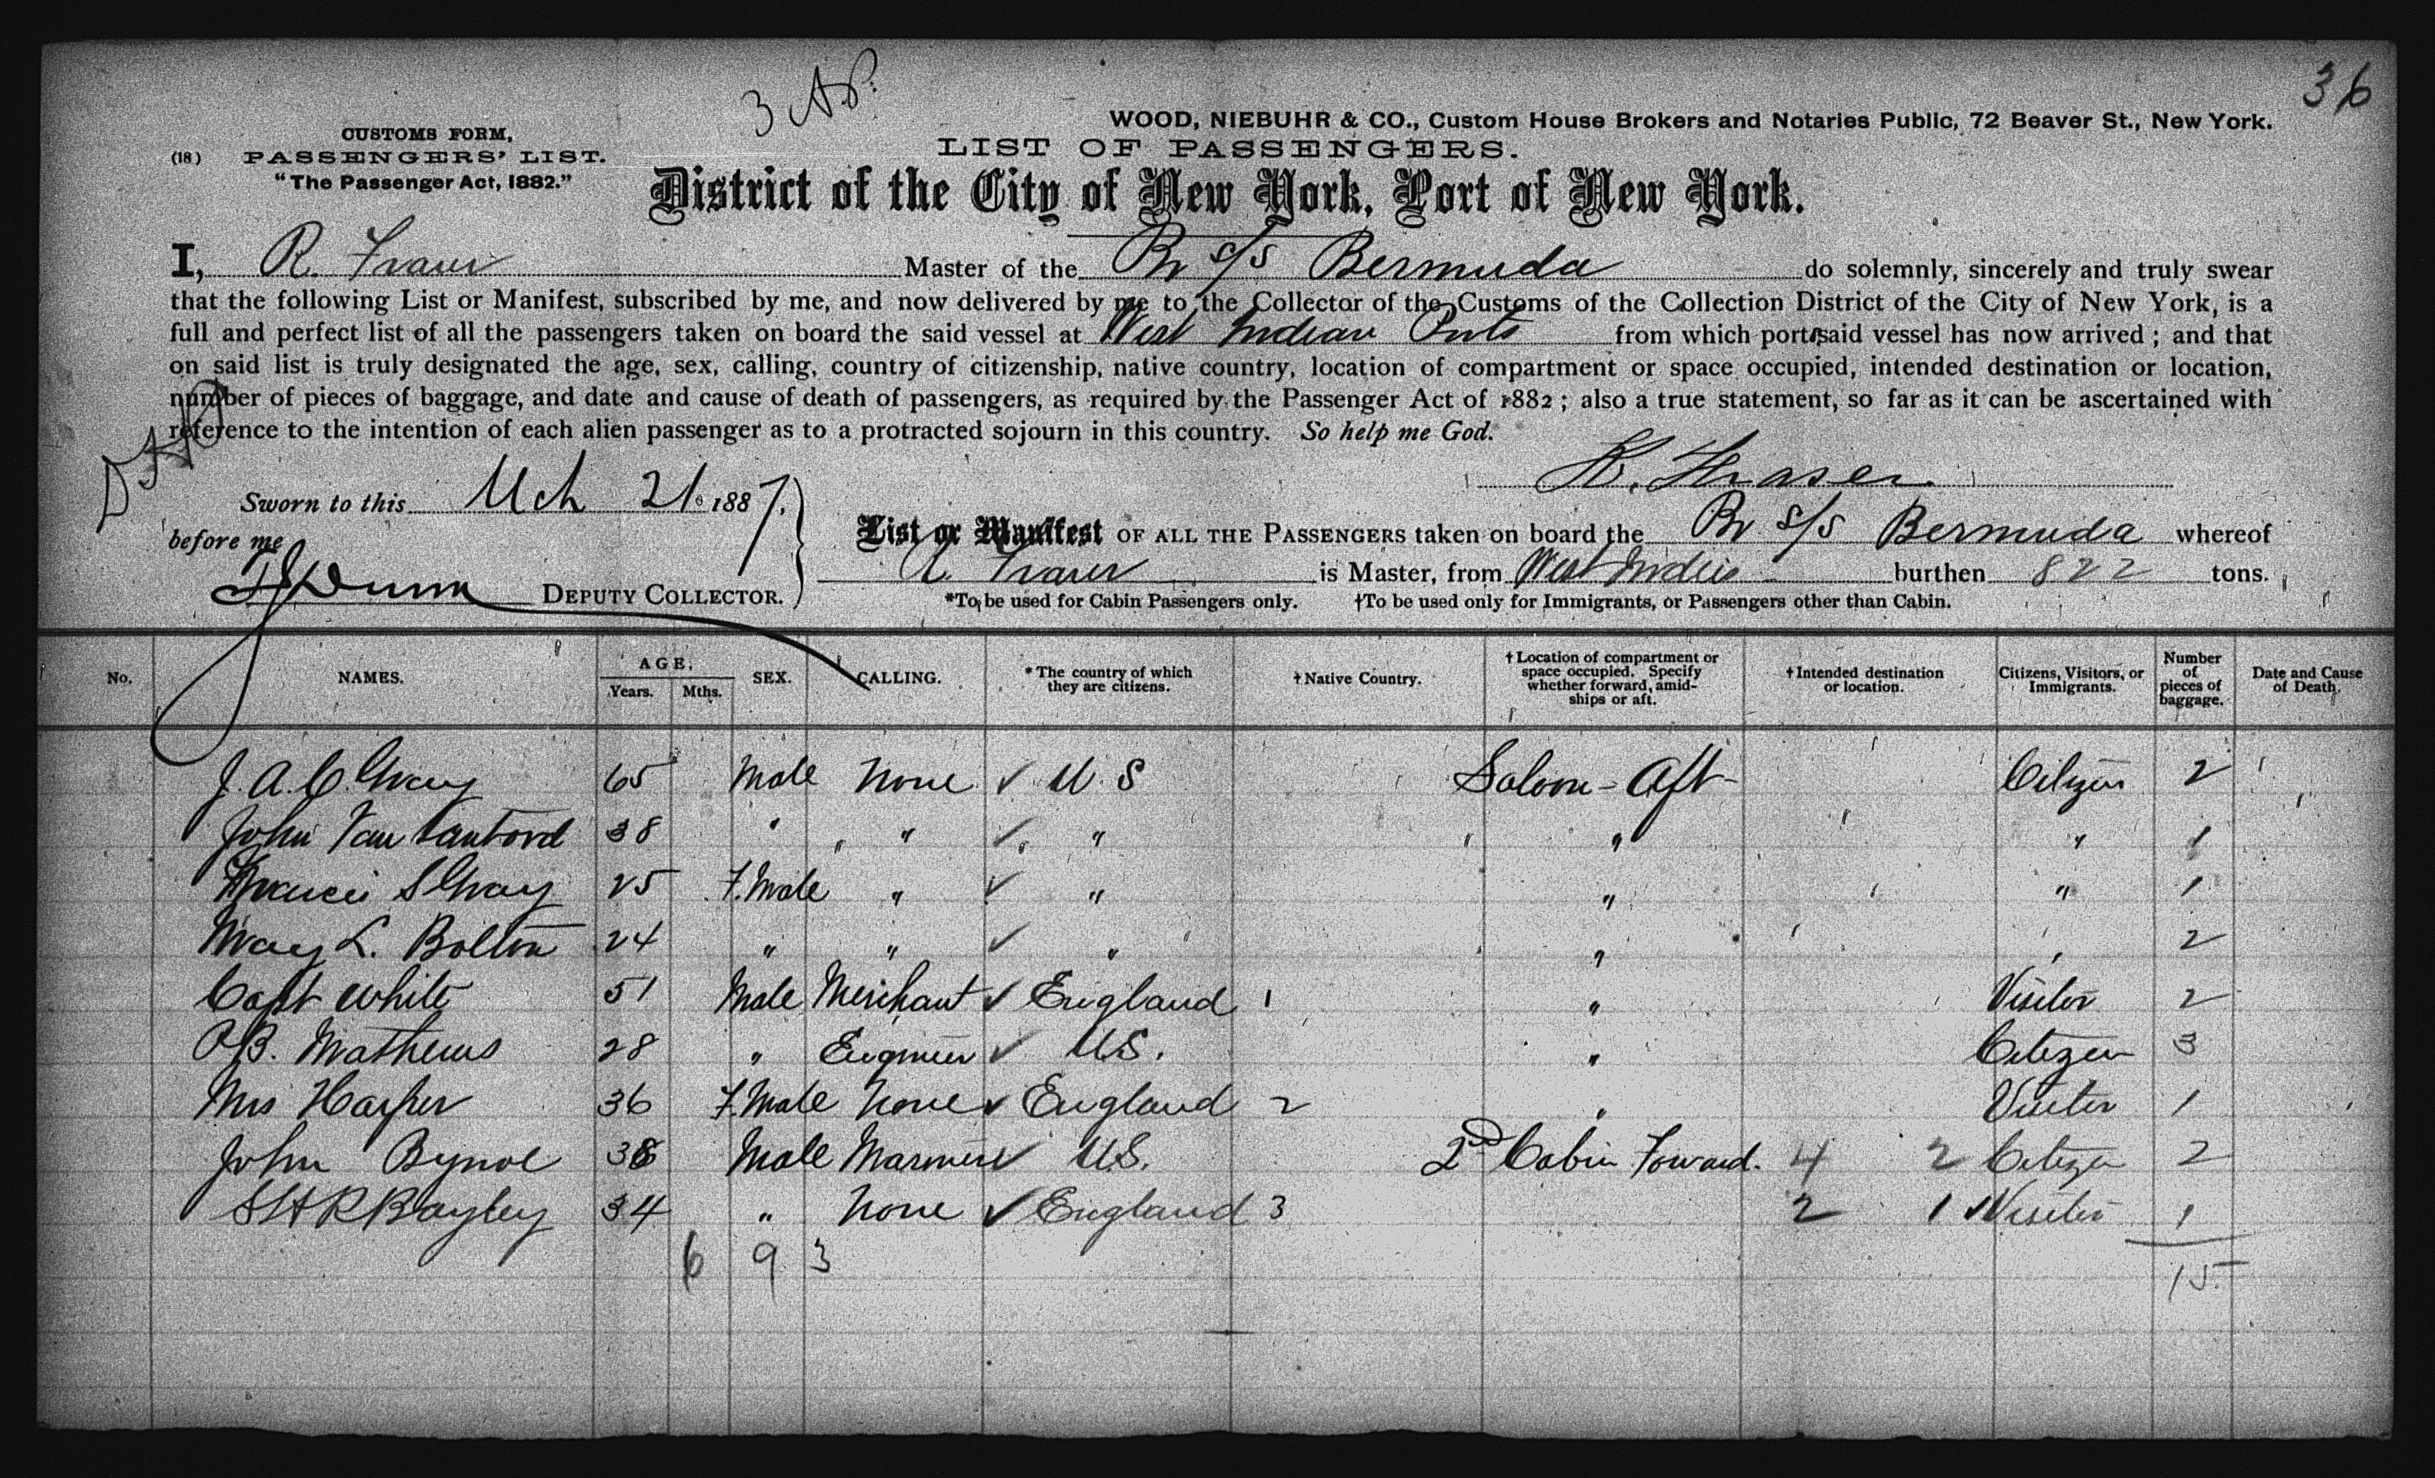 36
3 
WOOD, NIEBUHR & CO., Custom House Brokers and Notaries Public, 72 Beaver St., New York.
CUSTOMS FORM,
(18) PASSENGERS' LIST.
"The Passenger Act, 1882."
LIST OF PASSENGERS.
District of the City of New York, Port of New York.
I, R. Fraser Master of the Br s/s Bermuda do solemnly, sincerely and truly swear
that the following List or Manifest, subscribed by me, and now delivered by me to the Collector of the Customs of the Collection District of the City of New York, is a
full and perfect list of all the passengers taken on board the said vessel at West Indian Ports from which ports said vessel has now arrived ; and that
on said list is truly designated the age, sex, calling, country of citizenship, native country, location of compartment or space occupied, intended destination or location,
number of pieces of baggage, and date and cause of death of passengers, as required by the Passenger Act of 1882 ; also a true statement, so far as it can be ascertained with
reference to the intention of each alien passenger as to a protracted sojourn in this country. So help me God.
R. Fraser
Sworn to this Mch 21 1887.
before me
Dunn DEPUTY COLLECTOR.
List or Manifest OF ALL THE PASSENGERS taken on board the Br s/s Bermuda whereof
R. Fraser is Master, from West Indies burthen 822 tons.
*To be used for Cabin Passengers only. †To be used only for Immigrants, or Passengers other than Cabin.
No. NAMES. AGE. Years. Mths. SEX. CALLING. *The country of which they are citizens. †Native Country. †Location of compartment or space occupied. Specify whether forward, amidships or aft. †Intended destination or location. Citizens, Visitors, or Immigrants. Number of pieces of baggage. Date and Cause of Death.
J. A. C. Gray 65 Male None ✓ U. S Saloon - Aft - Citizen 2
John Van Santvord 38 " " ✓ " " " 1
Francis S Gray 25 F. Male " ✓ " " " 1
May L. Bolton 24 " " ✓ " " " 2
Capt White 51 Male Merchant ✓ England 1 " Visitor 2
P.B. Mathews 28 " Engineer ✓ U.S. " Citizen 3
Mrs Harper 36 F. Male None ✓ England 2 " Visitor 1
John Bynoe 38 Male Mariner ✓ U.S. 2nd Cabin Forward. 4 2 Citizen 2
S H R Bayley 34 " None ✓ England 3 2 1 ✓ Visitor 1
6 9 3
15